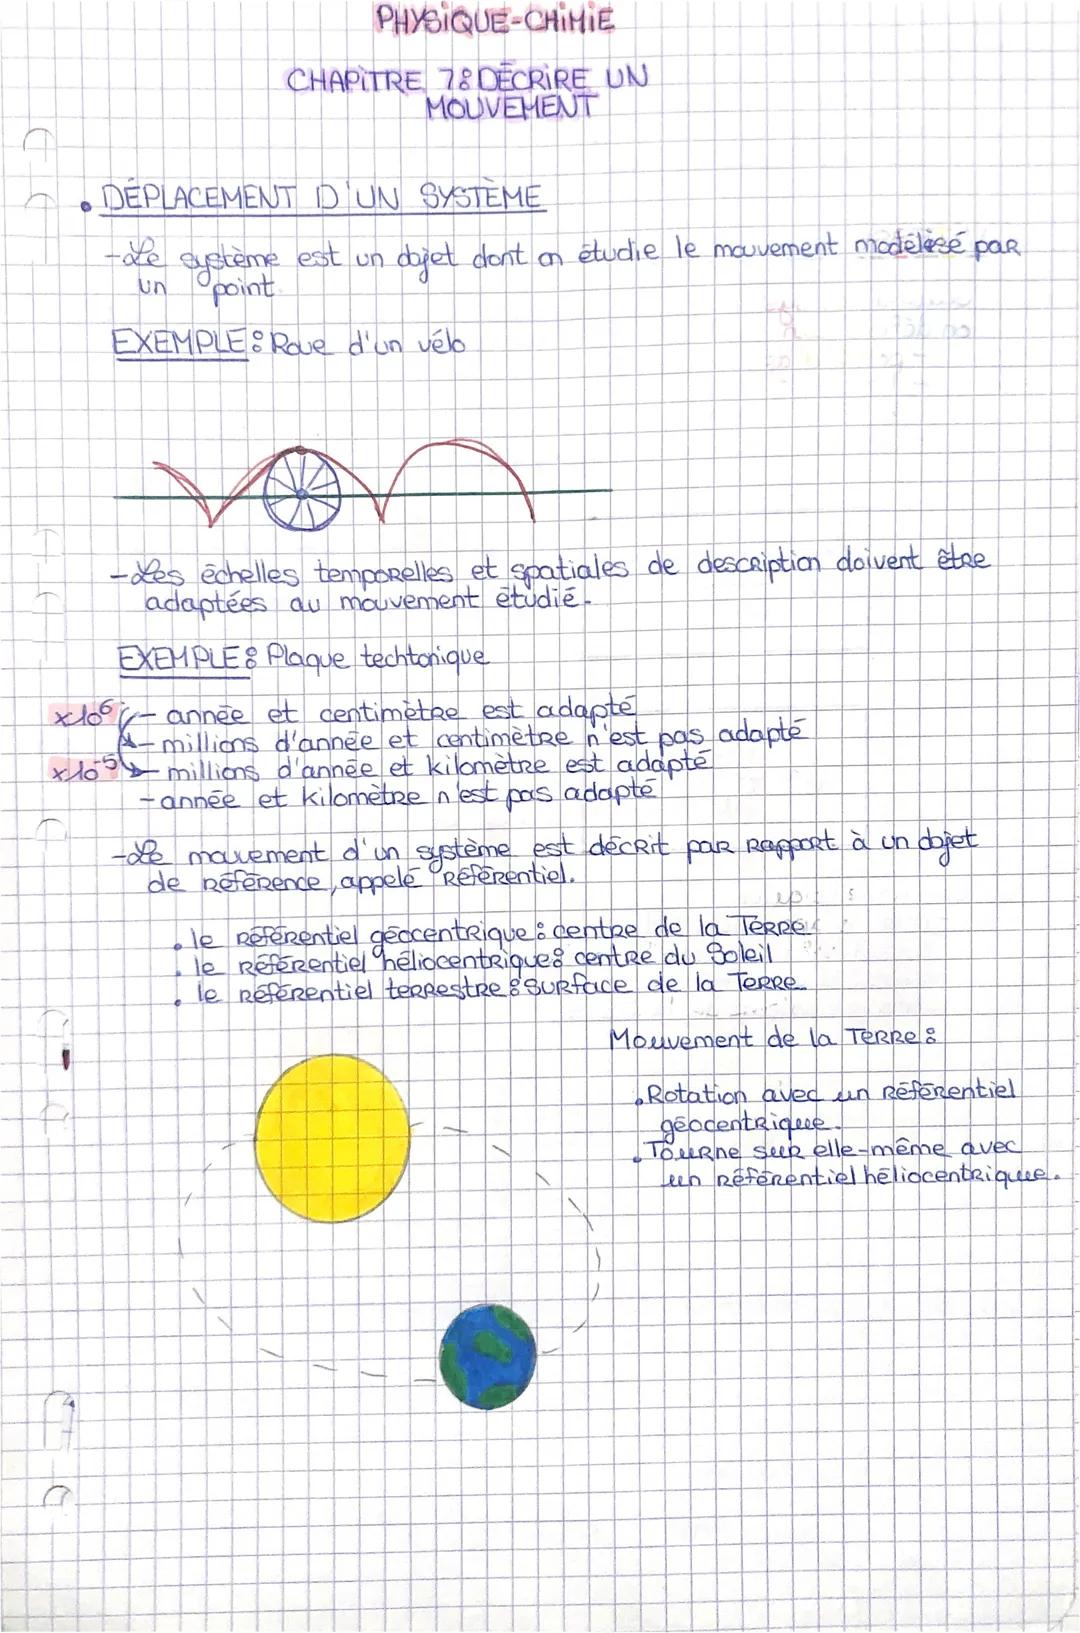 PHYSIQUE-CHIMIE
CHAPITRE 7: DÉCRIRE UN
MOUVEMENT
• DÉPLACEMENT D'UN SYSTÈME
- Le système est un objet dont on étudie le mouvement modélisé par
un point.
EXEMPLE: Roue d'un vélo
- Les échelles temporelles et spatiales de description doivent être
adaptées au mouvement étudié.
EXEMPLE: Plaque techtonique
x10⁶ - année et centimètre est adapté
- millions d'année et centimètre n'est pas adapté
x10⁻⁵ - millions d'année et kilomètre est adapté
- année et kilomètre n'est pas adapté
- Le mouvement d'un système est décrit par rapport à un objet
de référence, appelé référentiel.
• le référentiel géocentrique: centre de la Terre
• le référentiel héliocentrique: centre du Soleil
• le référentiel terrestre: surface de la Terre
Mouvement de la Terre:
• Rotation avec un référentiel
géocentrique.
• Tourne sur elle-même avec
un référentiel héliocentrique.